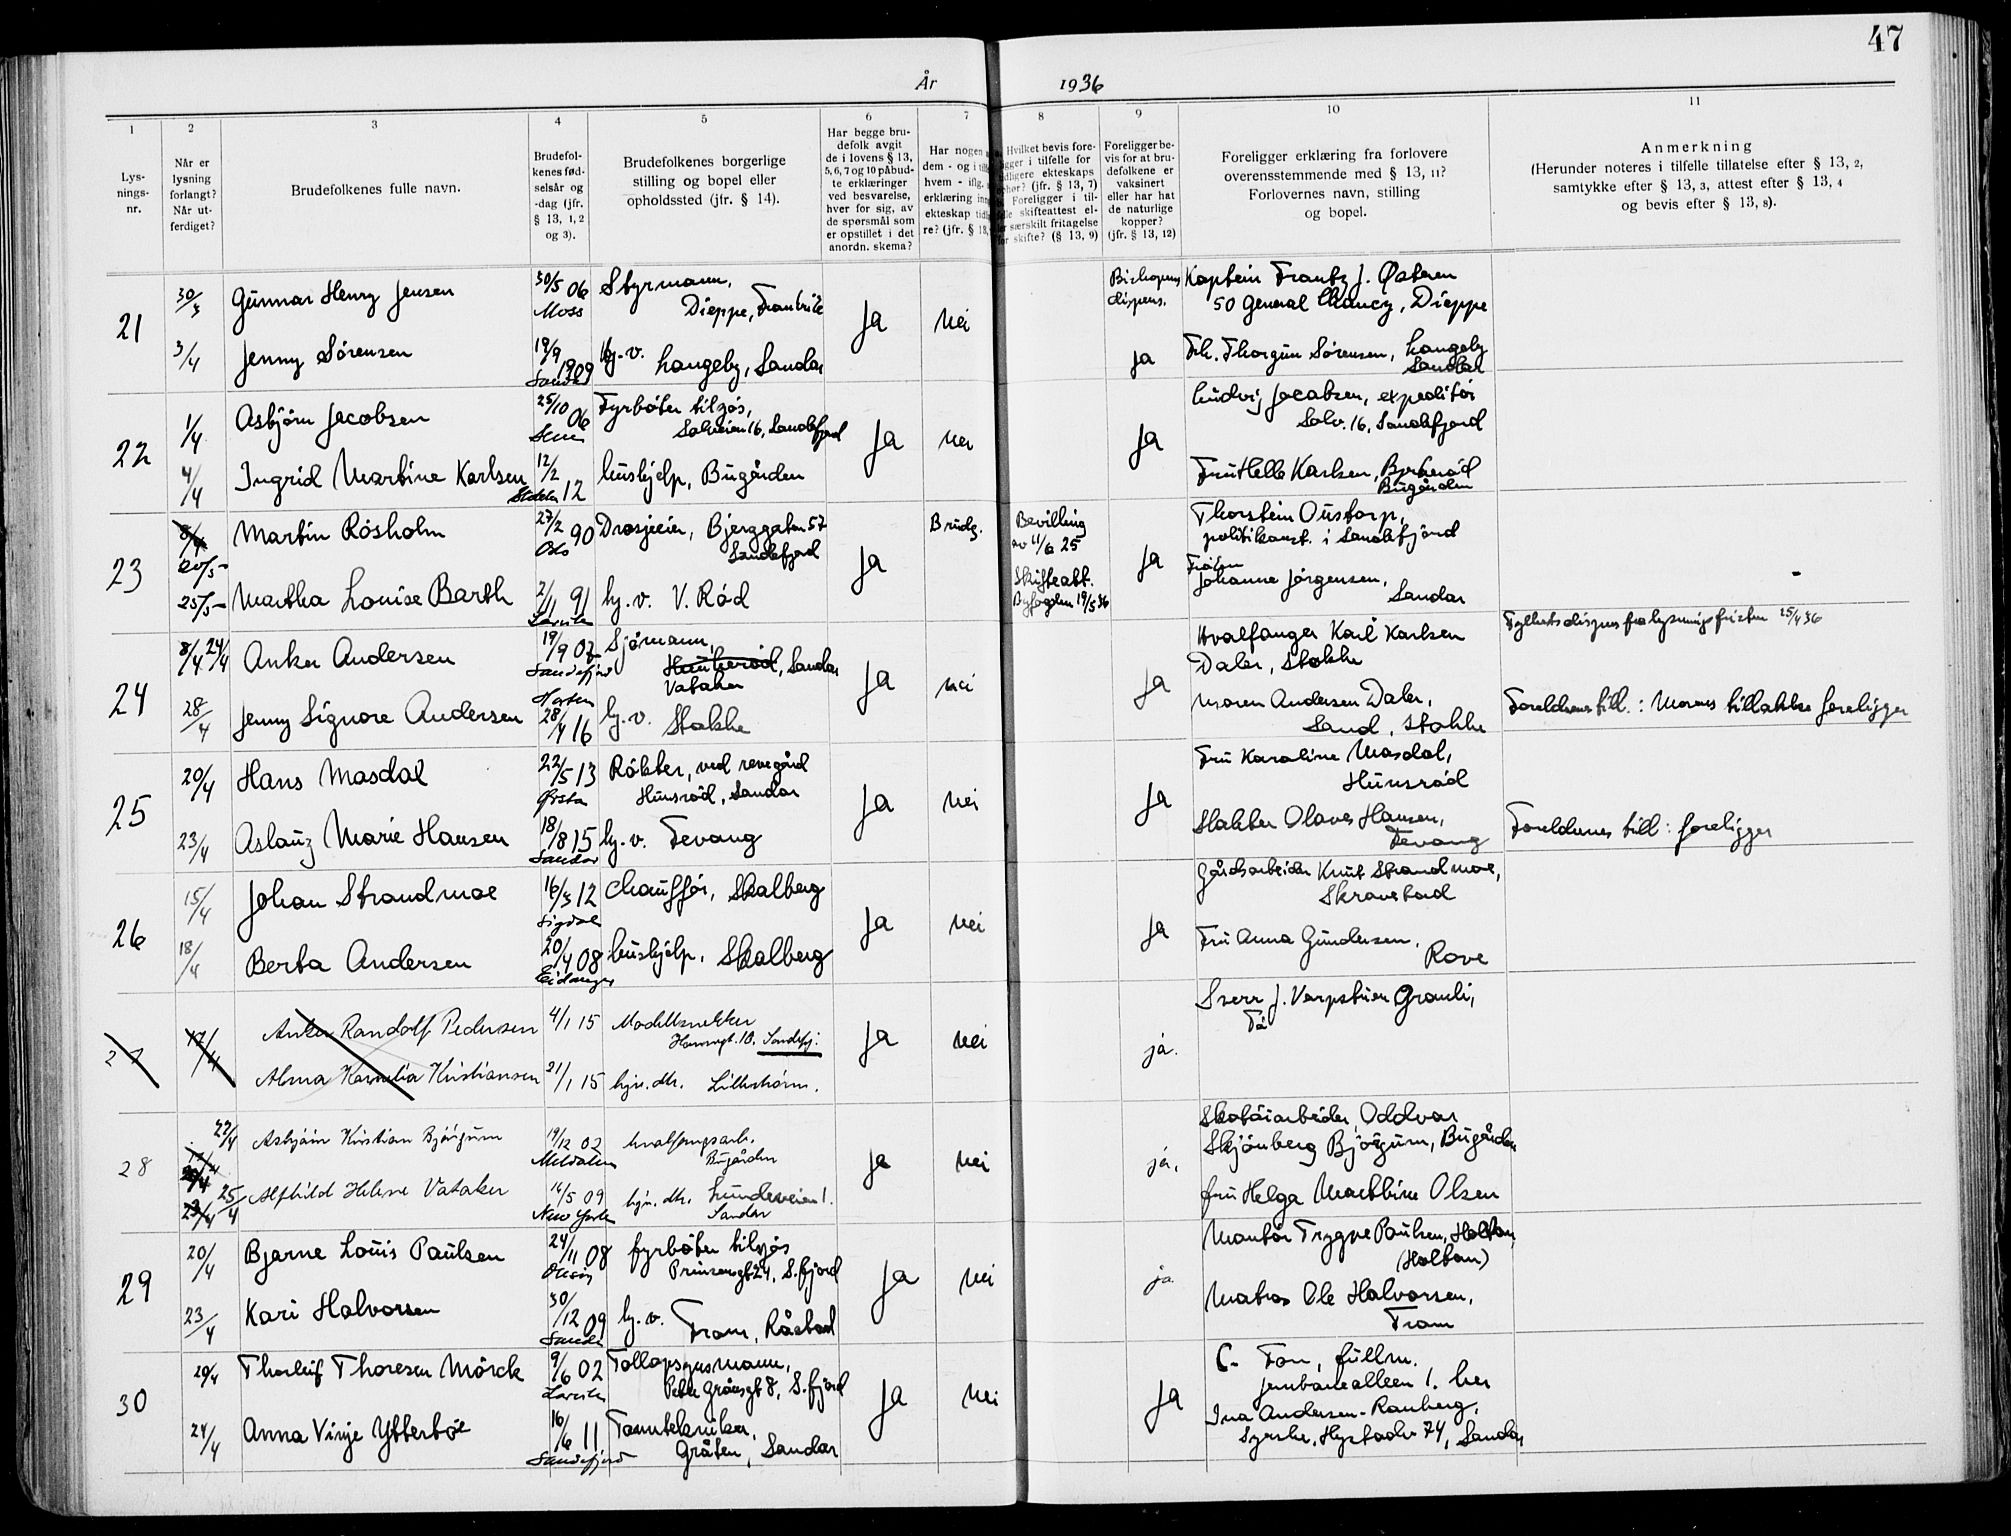 47
År 1936
1 2 3 4 5 6 7 8 9 10 11
Lys-
nings-
nr.
Når er
lysning
forlangt?
Når ut-
ferdiget?
Brudefolkenes fulle navn.
Brudefol-
kenes fød-
selsår og
-dag (jfr.
§ 13, 1, 2
og 3).
Brudefolkenes borgerlige
stilling og bopel eller
opholdssted (jfr. § 14).
Har begge bru-
defolk avgit
de i lovens § 13,
5, 6, 7 og 10 påbud-
te erklæringer
ved besvarelse,
hver for sig, av
de spørsmål som
er opstillet i det
anordn. skema?
Har nogen
dem - og i
hvem - iflg.
erklæring
ekteskap
re? (jfr. § 13,
Hvilket bevis fore-
ligger i tilfelle for
tidligere ekteskaps
ophør? (jfr. § 13, 7)
Foreligger i til-
felle skifteattest el-
ler særskilt fritagelse
for skifte? (§ 13, 9)
Foreligger be-
vis for at bru-
defolkene er
vaksinert
eller har hat
de naturlige
kopper?
(jfr. § 13, 12)
Foreligger erklæring fra forlovere
overensstemmende med § 13, 11?
Forlovernes navn, stilling
og bopel.
Anmerkning
(Herunder noteres i tilfelle tillatelse efter § 13, 2,
samtykke efter § 13, 3, attest efter § 13, 4
og bevis efter § 13, 8).
21
30/3 Gunnar Henry Jensen 30/5 06 Moss Styrmann,
Dieppe, Frankrike
Ja Nei
Bishopens
dispens.
Kaptein Frantz J. Østeren
50 General Chancy, Dieppe
3/4 Jenny Sørensen 19/9 1909 Sandar hj.v. Langeby, Sandar
Ja Frk. Thorgun Sørensen, Langeby
Sandar
22
1/4 Asbjørn Jacobsen 25/10 06 Sem Fyrbøter tilsjøs,
Solveien 16, Sandefjord
Ja Nei Ja
Ludvig Jacobsen, expeditør
Solv. 16, Sandefjord
4/4 Ingrid Martine Karlsen 12/2 12 Stokke hushjelp, Bugården
Fru Helle Karlsen,
Bugården
23
8/4 20/5 Martin Rösholm 27/2 90 Oslo Drosjeeier, Bjerggaten 57
Sandefjord
Ja Brudg.
Bevilling
av 11/6 25
Skifteatt.
Byfogden 19/5 36
Ja
Thorstein Oustorp,
politikonst. i Sandefjord
25/5 Martha Louise Barth 2/11 91 Larvik hj.v. V. Rød
Frøken
Johanne Jørgensen,
Sandar
24
8/4 24/4 Anker Andersen 19/9 07 Sandefjord Sjømann,
Haukerød, Sandar
Vataker
Ja Nei Ja
Hvalfanger Karl Karlsen
Daler, Stokke
Fylkets dispens fra lysningsfristen 25/4 36
28/4 Jenny Signore Andersen Horten 28/4 16 hj.v. Stokke
Maren Andersen Daler,
Sand, Stokke
Foreldrenes till.: Morens tillatelse foreligger
25
20/4 Hans Masdal 22/5 13 Ørsta Røkter, ved revegård
Hunsrød, Sandar
Ja Nei Ja
Fru Karoline Masdal,
Hunsrød
23/4 Aslaug Marie Hansen 18/8 15 Sandar hj.v. Fevang
Slakter Olaves Hansen,
Fevang
Foreldrenes till: foreligger
26
15/4 Johan Strandmoe 16/3 12 Sigdal Chauffør, Skalberg
Ja Nei Ja
Gårdsarbeider Knut Strandmoe,
Skravestad
18/4 Berta Andersen 20/4 08 Eidanger hushjelp, Skalberg
Fru Anna Gundersen,
Rove
27
17/4 Anker Randolf Pedersen 4/1 15 Modellsnekker
Havnegt. 10, Sandefj.
Ja Nei ja.
Sverr J. Varpstuen Granli,
Alma Kornelia Kristiansen 21/1 15 hjv. dtr. Lillestrøm.
28
22/4 Asbjørn Kristian Bjørgum 19/12 02 Meldalen hvalfangstarb.
Bugården
Ja Nei ja,
Skotøiarbeider, Oddvar
Skjønberg Bjørgum, Bugården
25/4 Alfhild Helene Vataker 16/5 09 New York hjv. dtr. Lundeveien 1.
Sandar
fru Helga Marthine Olsen
29
20/4 Bjarne Louis Paulsen 24/11 08 fyrbøter tilsjøs
Prinsensgt 24, S.fjord
Ja Nei ja
Montør Trygve Paulsen, Holtan,
(Holtan)
23/4 Kari Halvorsen 30/12 09 Sandar hj.v. Fram, Råstad
Matros Ole Halvorsen,
Fram
30
20/4 Thorleif Thoresen Mörck 9/6 02 Larvik Tollopsynsmann,
Peter Grønsgt 8, S.fjord
Ja Nei Ja
C. Fon, fullm.
Jernbanealleen 1. her
24/4 Anna Vinje Ytterböe 16/6 11 Sandefjord Tanntekniker,
Gråten, Sandar
Ina Andersen-Ranberg,
Syerske, Hystadv 74, Sandar